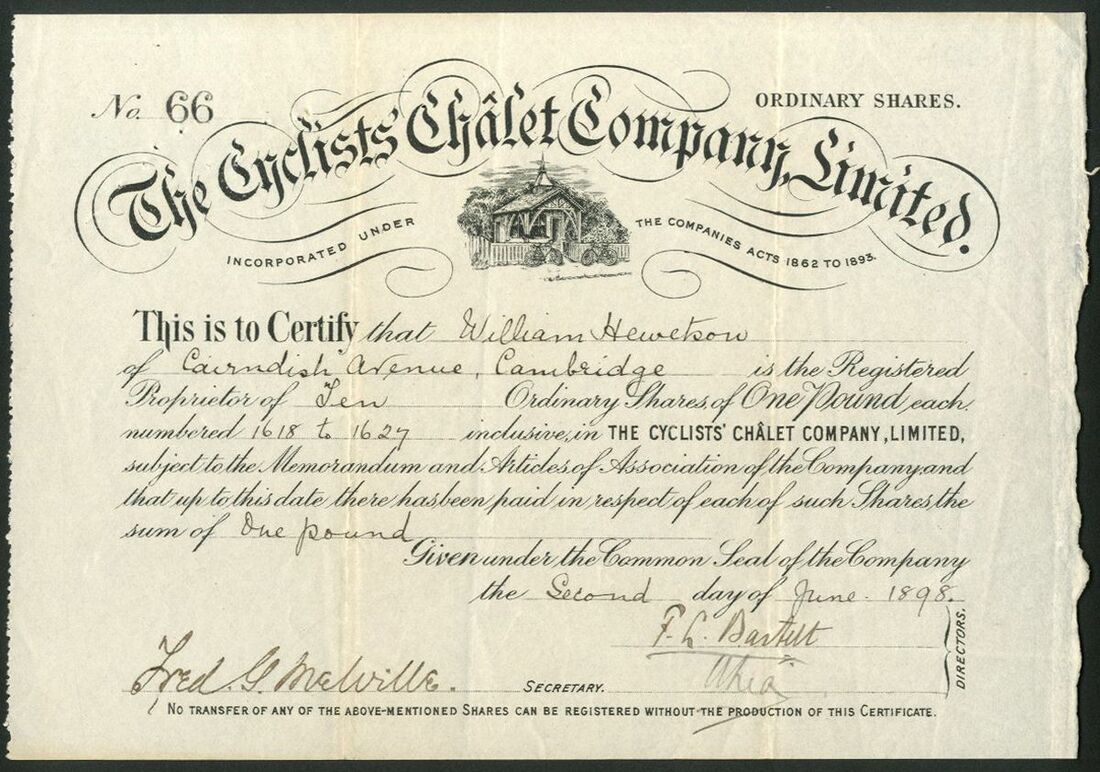 No. 66
ORDINARY SHARES.
The Cyclists' Châlet Company, Limited.
INCORPORATED UNDER THE COMPANIES ACTS 1862 TO 1893.
This is to Certify that William Hewetson
of Cairndish Avenue, Cambridge is the Registered
Proprietor of Ten Ordinary Shares, of One Pound each.
numbered 1618 to 1627 inclusive, in THE CYCLISTS' CHÂLET COMPANY, LIMITED,
subject to the Memorandum and Articles of Association of the Company, and
that up to this date there has been paid in respect of each of such Shares, the
sum of One pound
Given under the Common Seal of the Company
the Second day of June 1898.
F. L. Bartelt
DIRECTORS.
Fred. G. Melville. SECRETARY.
NO TRANSFER OF ANY OF THE ABOVE-MENTIONED SHARES CAN BE REGISTERED WITHOUT THE PRODUCTION OF THIS CERTIFICATE.